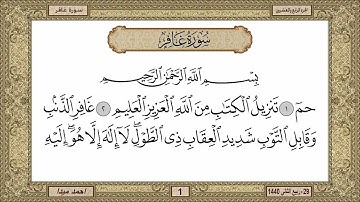 الجزء الرابع والعشرين
سورة غافر
سُورَةُ غَافِرٍ
بِسْمِ ٱللَّهِ ٱلرَّحْمَٰنِ ٱلرَّحِيمِ
حمٓ ١ تَنزِيلُ ٱلْكِتَٰبِ مِنَ ٱللَّهِ ٱلْعَزِيزِ ٱلْعَلِيمِ ٢ غَافِرِ ٱلذَّنۢبِ
وَقَابِلِ ٱلتَّوْبِ شَدِيدِ ٱلْعِقَابِ ذِى ٱلطَّوْلِ ۖ لَآ إِلَٰهَ إِلَّا هُوَ ۖ إِلَيْهِ
29 - ربيع الثاني 1440
1